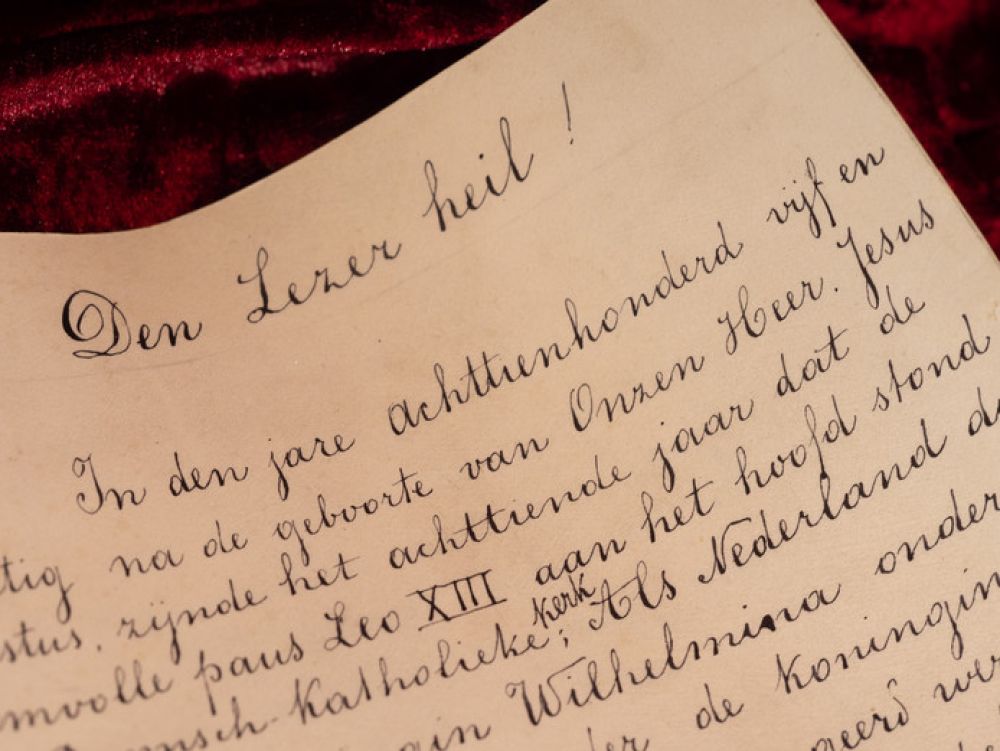 Den Lezer heil!
In den jare achttienhonderd vijf en
tig na de geboorte van Onzen Heer. Jesus
stus, zijnde het achttiende jaar dat de
mvolle paus Leo XIII aan het hoofd stond
msch-Katholieke kerk; Als Nederland d
gin Wilhelmina onder
der de koningin
geerd wer